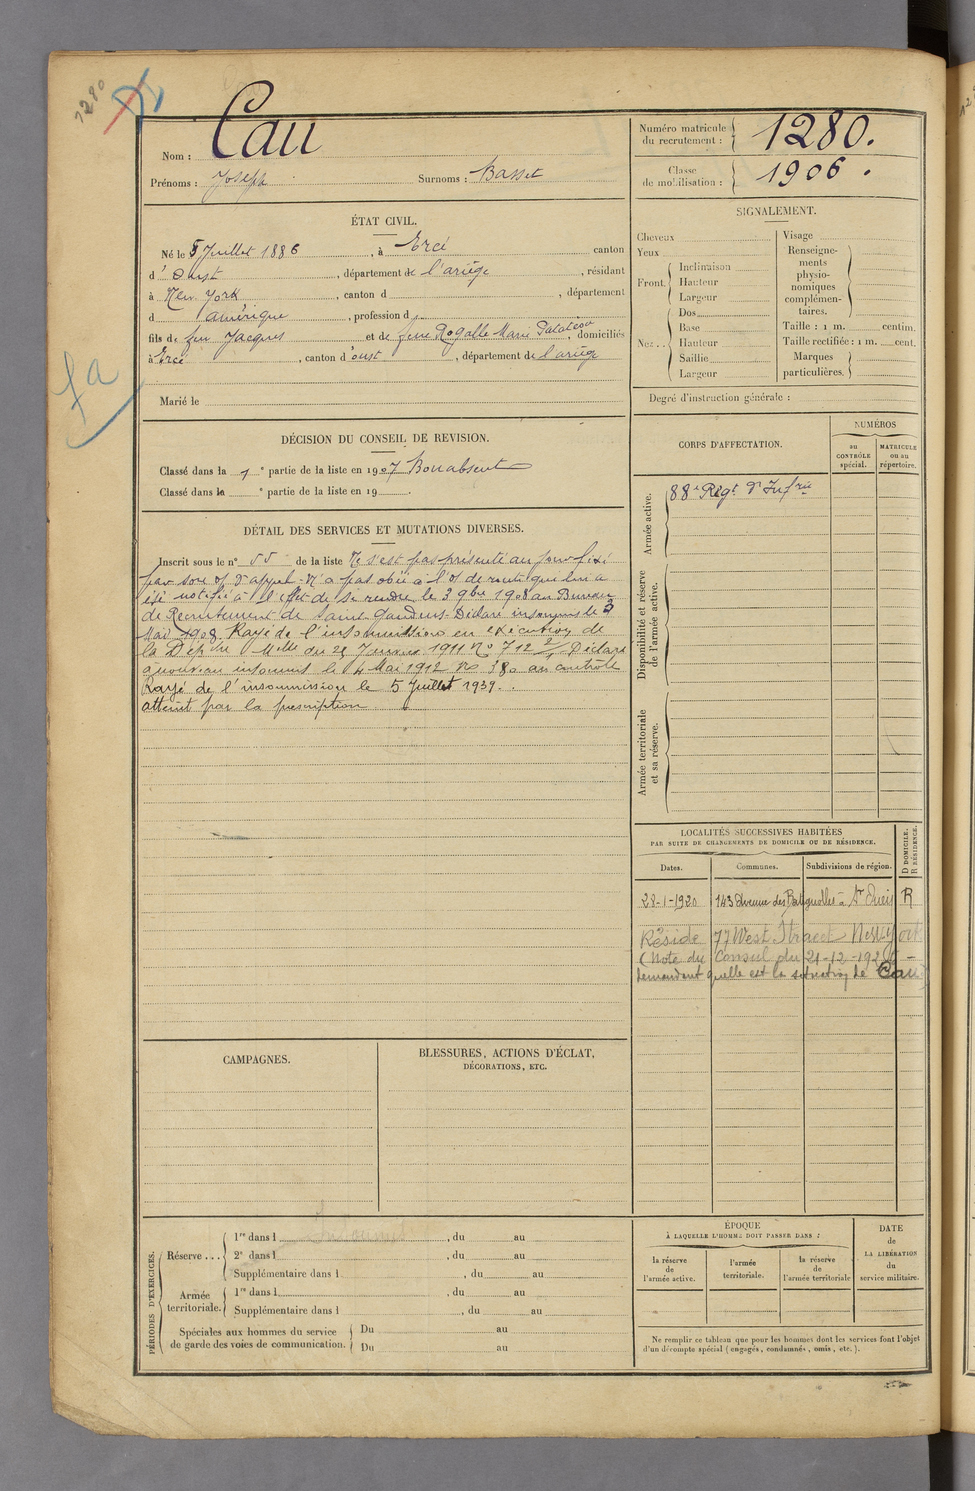 1280
Nom : Cau
Prénoms : Joseph Surnoms : Basset
Numéro matricule du recrutement : 1280.
Classe de mobilisation : 1906.
ÉTAT CIVIL.
Né le 5 Juillet 1886, à Ercé canton
d'Oust, département de l'ariège, résidant
à New York, canton d , département
d amérique, profession d
fils de feu Jacques et de feue Rogalle Marie domiciliés
à Ercé, canton d'oust, département de l'ariège
Marié le
fa
DÉCISION DU CONSEIL DE REVISION.
Classé dans la 1e partie de la liste en 1907 Bon absent
Classé dans la e partie de la liste en 19 .
DÉTAIL DES SERVICES ET MUTATIONS DIVERSES.
Inscrit sous le n° 55 de la liste Ne s'est pas présenté au jour fixé
par son o/ d'appel - N'a pas obéi à l'o/ de route qui lui a
été notifié à l'effet de se rendre le 3 9bre 1908 au Bureau
de Recrutement de Saint Gaudens. Déclaré insoumis le 3
Mai 1908. Rayé de l'insoumission en exécution de
la Dép Mlle du 29 Janvier 1911 N° 712 Déclaré
à nouveau insoumis le 4 Mai 1912 No 380 au contrôle
Rayé de l'insoumission le 5 Juillet 1939.
atteint par la prescription
SIGNALEMENT.
Cheveux
Yeux
Front. Inclinaison
Hauteur
Largeur
Nez. Dos
Base
Hauteur
Saillie
Largeur
Visage
Renseignements physionomiques complémentaires.
Taille : 1 m. centim.
Taille rectifiée : 1 m. cent.
Marques particulières.
Degré d'instruction générale :
CORPS D'AFFECTATION.
NUMÉROS
au CONTRÔLE spécial.
MATRICULE ou au répertoire.
Armée active.
88e Régt d'Infrie
Disponibilité et réserve de l'armée active.
Armée territoriale et sa réserve.
LOCALITÉS SUCCESSIVES HABITÉES
PAR SUITE DE CHANGEMENTS DE DOMICILE OU DE RÉSIDENCE.
Dates. Communes. Subdivisions de région. D DOMICILE. R RÉSIDENCE.
28-1-1920 143 Avenue des Batignolles à St Ouen R
Réside 77 West Street New York
(Note du Consul du 21-12-192
demandant quelle est la situation de Cau)
CAMPAGNES.
BLESSURES, ACTIONS D'ÉCLAT,
DÉCORATIONS, ETC.
PÉRIODES D'EXERCICES.
Réserve . . . 1re dans l , du au
2e dans l , du au
Supplémentaire dans l , du au
Armée territoriale. 1re dans l , du au
Supplémentaire dans l , du au
Spéciales aux hommes du service de garde des voies de communication. Du au
Du au
Insoumis
ÉPOQUE
À LAQUELLE L'HOMME DOIT PASSER DANS :
la réserve de l'armée active.
l'armée territoriale.
la réserve de l'armée territoriale
DATE de LA LIBÉRATION du service militaire.
Ne remplir ce tableau que pour les hommes dont les services font l'objet
d'un décompte spécial (engagés, condamnés, omis, etc.).